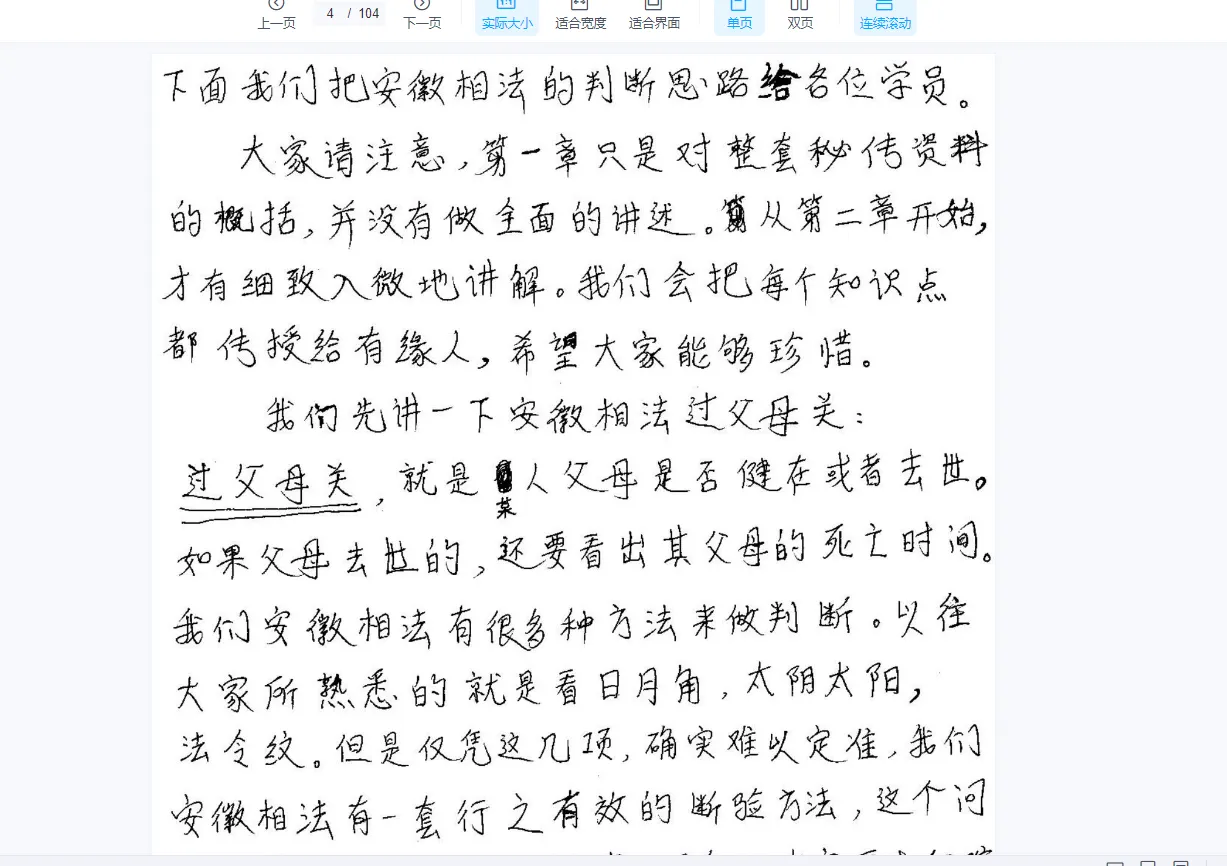 上一页 4 / 104 下一页 实际大小 适合宽度 适合界面 单页 双页 连续滚动
下面我们把安徽相法的判断思路给各位学员。
大家请注意,第一章只是对整套秘传资料
的概括,并没有做全面的讲述。从第二章开始,
才有细致入微地讲解。我们会把每个知识点
都传授给有缘人,希望大家能够珍惜。
我们先讲一下安徽相法过父母关:
过父母关,就是某人父母是否健在或者去世。
如果父母去世的,还要看出其父母的死亡时间。
我们安徽相法有很多种方法来做判断。以往
大家所熟悉的就是看日月角,太阴太阳,
法令纹。但是仅凭这几项,确实难以定准,我们
安徽相法有一套行之有效的断验方法,这个问